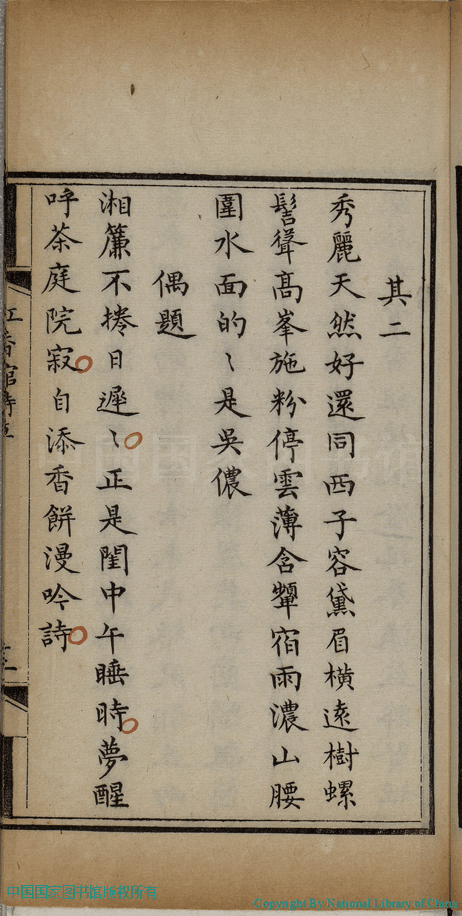 其二
秀麗天然好還同西子容黛眉橫遠樹螺
髻聳高峯施粉停雲薄含顰宿雨濃山腰
圍水面的〻是吳儂
偶題
湘簾不捲日遲〻正是閨中午睡時夢醒
呼茶庭院寂自添香餅漫吟詩
紅香館詩草
中国国家图书馆版权所有
Copyright By National Library of China